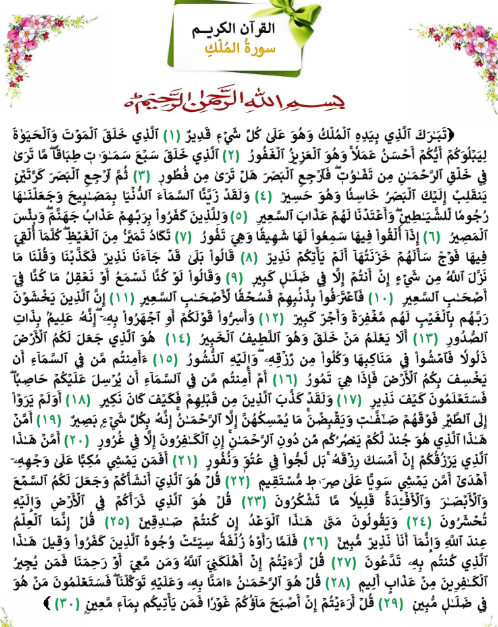 القرآن الكريم
سورة المُلْكِ
بسم الله الرحمن الرحيم
﴿تَبَٰرَكَ الَّذِي بِيَدِهِ الْمُلْكُ وَهُوَ عَلَىٰ كُلِّ شَيْءٍ قَدِيرٌ (١) الَّذِي خَلَقَ الْمَوْتَ وَالْحَيَوٰةَ
لِيَبْلُوَكُمْ أَيُّكُمْ أَحْسَنُ عَمَلًا ۚ وَهُوَ الْعَزِيزُ الْغَفُورُ (٢) الَّذِي خَلَقَ سَبْعَ سَمَٰوَٰتٍ طِبَاقًا ۖ مَّا تَرَىٰ
فِي خَلْقِ الرَّحْمَٰنِ مِن تَفَٰوُتٍ ۖ فَارْجِعِ الْبَصَرَ هَلْ تَرَىٰ مِن فُطُورٍ (٣) ثُمَّ ارْجِعِ الْبَصَرَ كَرَّتَيْنِ
يَنقَلِبْ إِلَيْكَ الْبَصَرُ خَاسِئًا وَهُوَ حَسِيرٌ (٤) وَلَقَدْ زَيَّنَّا السَّمَاءَ الدُّنْيَا بِمَصَٰبِيحَ وَجَعَلْنَٰهَا
رُجُومًا لِّلشَّيَٰطِينِ ۖ وَأَعْتَدْنَا لَهُمْ عَذَابَ السَّعِيرِ (٥) وَلِلَّذِينَ كَفَرُوا بِرَبِّهِمْ عَذَابُ جَهَنَّمَ ۖ وَبِئْسَ
الْمَصِيرُ (٦) إِذَا أُلْقُوا فِيهَا سَمِعُوا لَهَا شَهِيقًا وَهِيَ تَفُورُ (٧) تَكَادُ تَمَيَّزُ مِنَ الْغَيْظِ ۖ كُلَّمَا أُلْقِيَ
فِيهَا فَوْجٌ سَأَلَهُمْ خَزَنَتُهَا أَلَمْ يَأْتِكُمْ نَذِيرٌ (٨) قَالُوا بَلَىٰ قَدْ جَاءَنَا نَذِيرٌ فَكَذَّبْنَا وَقُلْنَا مَا
نَزَّلَ اللَّهُ مِن شَيْءٍ إِنْ أَنتُمْ إِلَّا فِي ضَلَٰلٍ كَبِيرٍ (٩) وَقَالُوا لَوْ كُنَّا نَسْمَعُ أَوْ نَعْقِلُ مَا كُنَّا فِي
أَصْحَٰبِ السَّعِيرِ (١٠) فَاعْتَرَفُوا بِذَنبِهِمْ فَسُحْقًا لِّأَصْحَٰبِ السَّعِيرِ (١١) إِنَّ الَّذِينَ يَخْشَوْنَ
رَبَّهُم بِالْغَيْبِ لَهُم مَّغْفِرَةٌ وَأَجْرٌ كَبِيرٌ (١٢) وَأَسِرُّوا قَوْلَكُمْ أَوِ اجْهَرُوا بِهِ ۖ إِنَّهُ عَلِيمٌ بِذَاتِ
الصُّدُورِ (١٣) أَلَا يَعْلَمُ مَنْ خَلَقَ وَهُوَ اللَّطِيفُ الْخَبِيرُ (١٤) هُوَ الَّذِي جَعَلَ لَكُمُ الْأَرْضَ
ذَلُولًا فَامْشُوا فِي مَنَاكِبِهَا وَكُلُوا مِن رِّزْقِهِ ۖ وَإِلَيْهِ النُّشُورُ (١٥) ءَأَمِنتُم مَّن فِي السَّمَاءِ أَن
يَخْسِفَ بِكُمُ الْأَرْضَ فَإِذَا هِيَ تَمُورُ (١٦) أَمْ أَمِنتُم مَّن فِي السَّمَاءِ أَن يُرْسِلَ عَلَيْكُمْ حَاصِبًا ۖ
فَسَتَعْلَمُونَ كَيْفَ نَذِيرِ (١٧) وَلَقَدْ كَذَّبَ الَّذِينَ مِن قَبْلِهِمْ فَكَيْفَ كَانَ نَكِيرِ (١٨) أَوَلَمْ يَرَوْا
إِلَى الطَّيْرِ فَوْقَهُمْ صَٰفَّٰتٍ وَيَقْبِضْنَ ۚ مَا يُمْسِكُهُنَّ إِلَّا الرَّحْمَٰنُ ۚ إِنَّهُ بِكُلِّ شَيْءٍ بَصِيرٌ (١٩) أَمَّنْ
هَٰذَا الَّذِي هُوَ جُندٌ لَّكُمْ يَنصُرُكُم مِّن دُونِ الرَّحْمَٰنِ ۚ إِنِ الْكَٰفِرُونَ إِلَّا فِي غُرُورٍ (٢٠) أَمَّنْ هَٰذَا
الَّذِي يَرْزُقُكُمْ إِنْ أَمْسَكَ رِزْقَهُ ۚ بَل لَّجُّوا فِي عُتُوٍّ وَنُفُورٍ (٢١) أَفَمَن يَمْشِي مُكِبًّا عَلَىٰ وَجْهِهِ
أَهْدَىٰ أَمَّن يَمْشِي سَوِيًّا عَلَىٰ صِرَٰطٍ مُّسْتَقِيمٍ (٢٢) قُلْ هُوَ الَّذِي أَنشَأَكُمْ وَجَعَلَ لَكُمُ السَّمْعَ
وَالْأَبْصَٰرَ وَالْأَفْـِٔدَةَ قَلِيلًا مَّا تَشْكُرُونَ (٢٣) قُلْ هُوَ الَّذِي ذَرَأَكُمْ فِي الْأَرْضِ وَإِلَيْهِ
تُحْشَرُونَ (٢٤) وَيَقُولُونَ مَتَىٰ هَٰذَا الْوَعْدُ إِن كُنتُمْ صَٰدِقِينَ (٢٥) قُلْ إِنَّمَا الْعِلْمُ
عِندَ اللَّهِ وَإِنَّمَا أَنَا نَذِيرٌ مُّبِينٌ (٢٦) فَلَمَّا رَأَوْهُ زُلْفَةً سِيئَتْ وُجُوهُ الَّذِينَ كَفَرُوا وَقِيلَ هَٰذَا
الَّذِي كُنتُم بِهِ تَدَّعُونَ (٢٧) قُلْ أَرَءَيْتُمْ إِنْ أَهْلَكَنِيَ اللَّهُ وَمَن مَّعِيَ أَوْ رَحِمَنَا فَمَن يُجِيرُ
الْكَٰفِرِينَ مِنْ عَذَابٍ أَلِيمٍ (٢٨) قُلْ هُوَ الرَّحْمَٰنُ ءَامَنَّا بِهِ وَعَلَيْهِ تَوَكَّلْنَا ۖ فَسَتَعْلَمُونَ مَنْ هُوَ
فِي ضَلَٰلٍ مُّبِينٍ (٢٩) قُلْ أَرَءَيْتُمْ إِنْ أَصْبَحَ مَاؤُكُمْ غَوْرًا فَمَن يَأْتِيكُم بِمَاءٍ مَّعِينٍ (٣٠)﴾